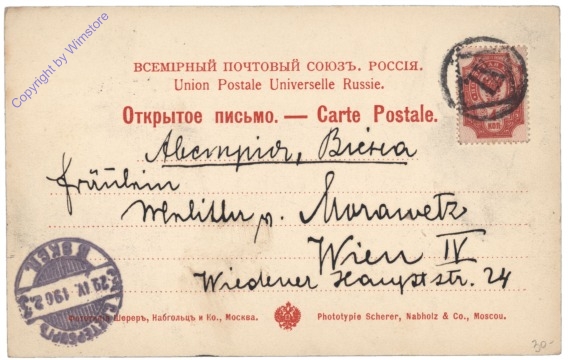 Copyright by Wimstore
ВСЕМІРНЫЙ ПОЧТОВЫЙ СОЮЗЪ. РОССІЯ.
Union Postale Universelle Russie.
Открытое письмо. — Carte Postale.
Австрія, Вѣна
Fräulein
v. Morawetz
Wien IV
Wiedener Hauptstr. 24
Фототипія Шереръ, Набгольцъ и Ко., Москва.
Phototypie Scherer, Nabholz & Co., Moscou.